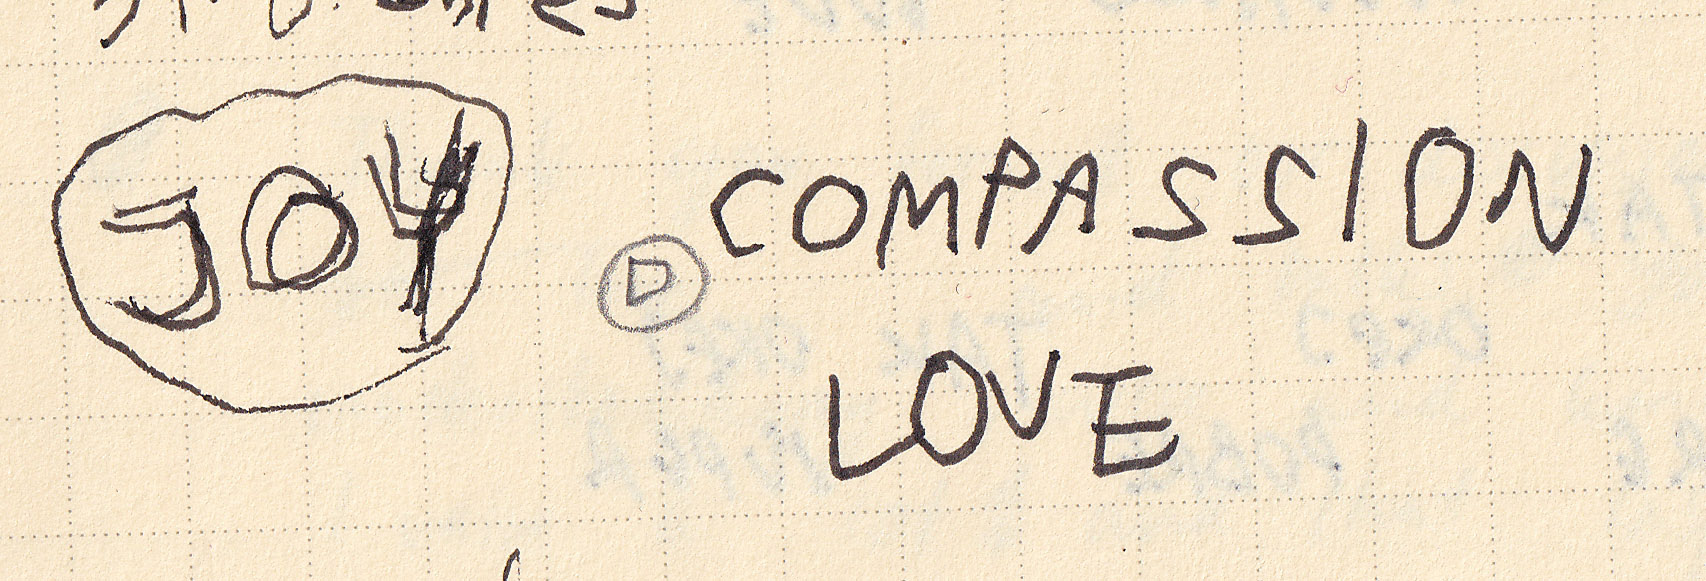 JOY
COMPASSION
LOVE